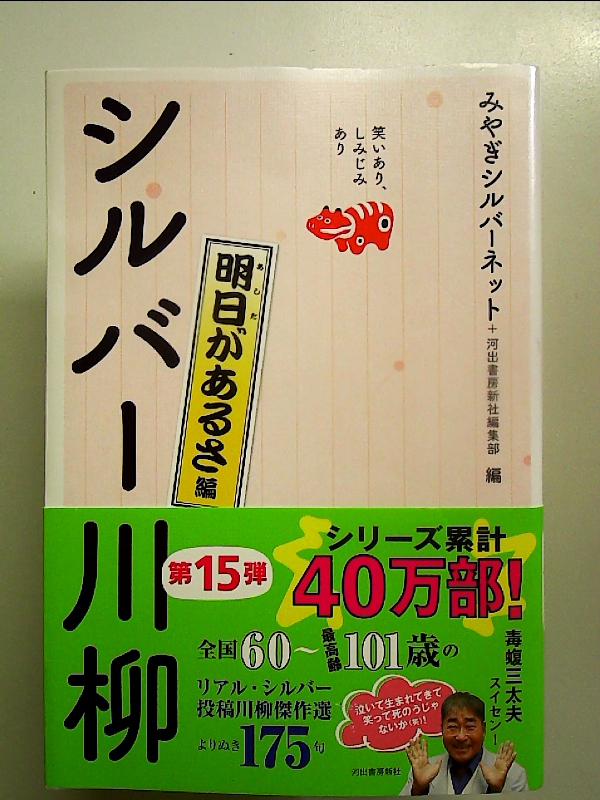 みやぎシルバーネット+河出書房新社編集部 編
笑いあり、
しみじみ
あり
シルバー川柳
明日があるさ編
あした
第15弾
シリーズ累計
40万部!
全国60〜最高齢101歳の
リアル・シルバー
投稿川柳傑作選
よりぬき175句
毒蝮三太夫
スイセンー
泣いて生まれてきて
笑って死のうじゃ
ないか(笑)!
河出書房新社